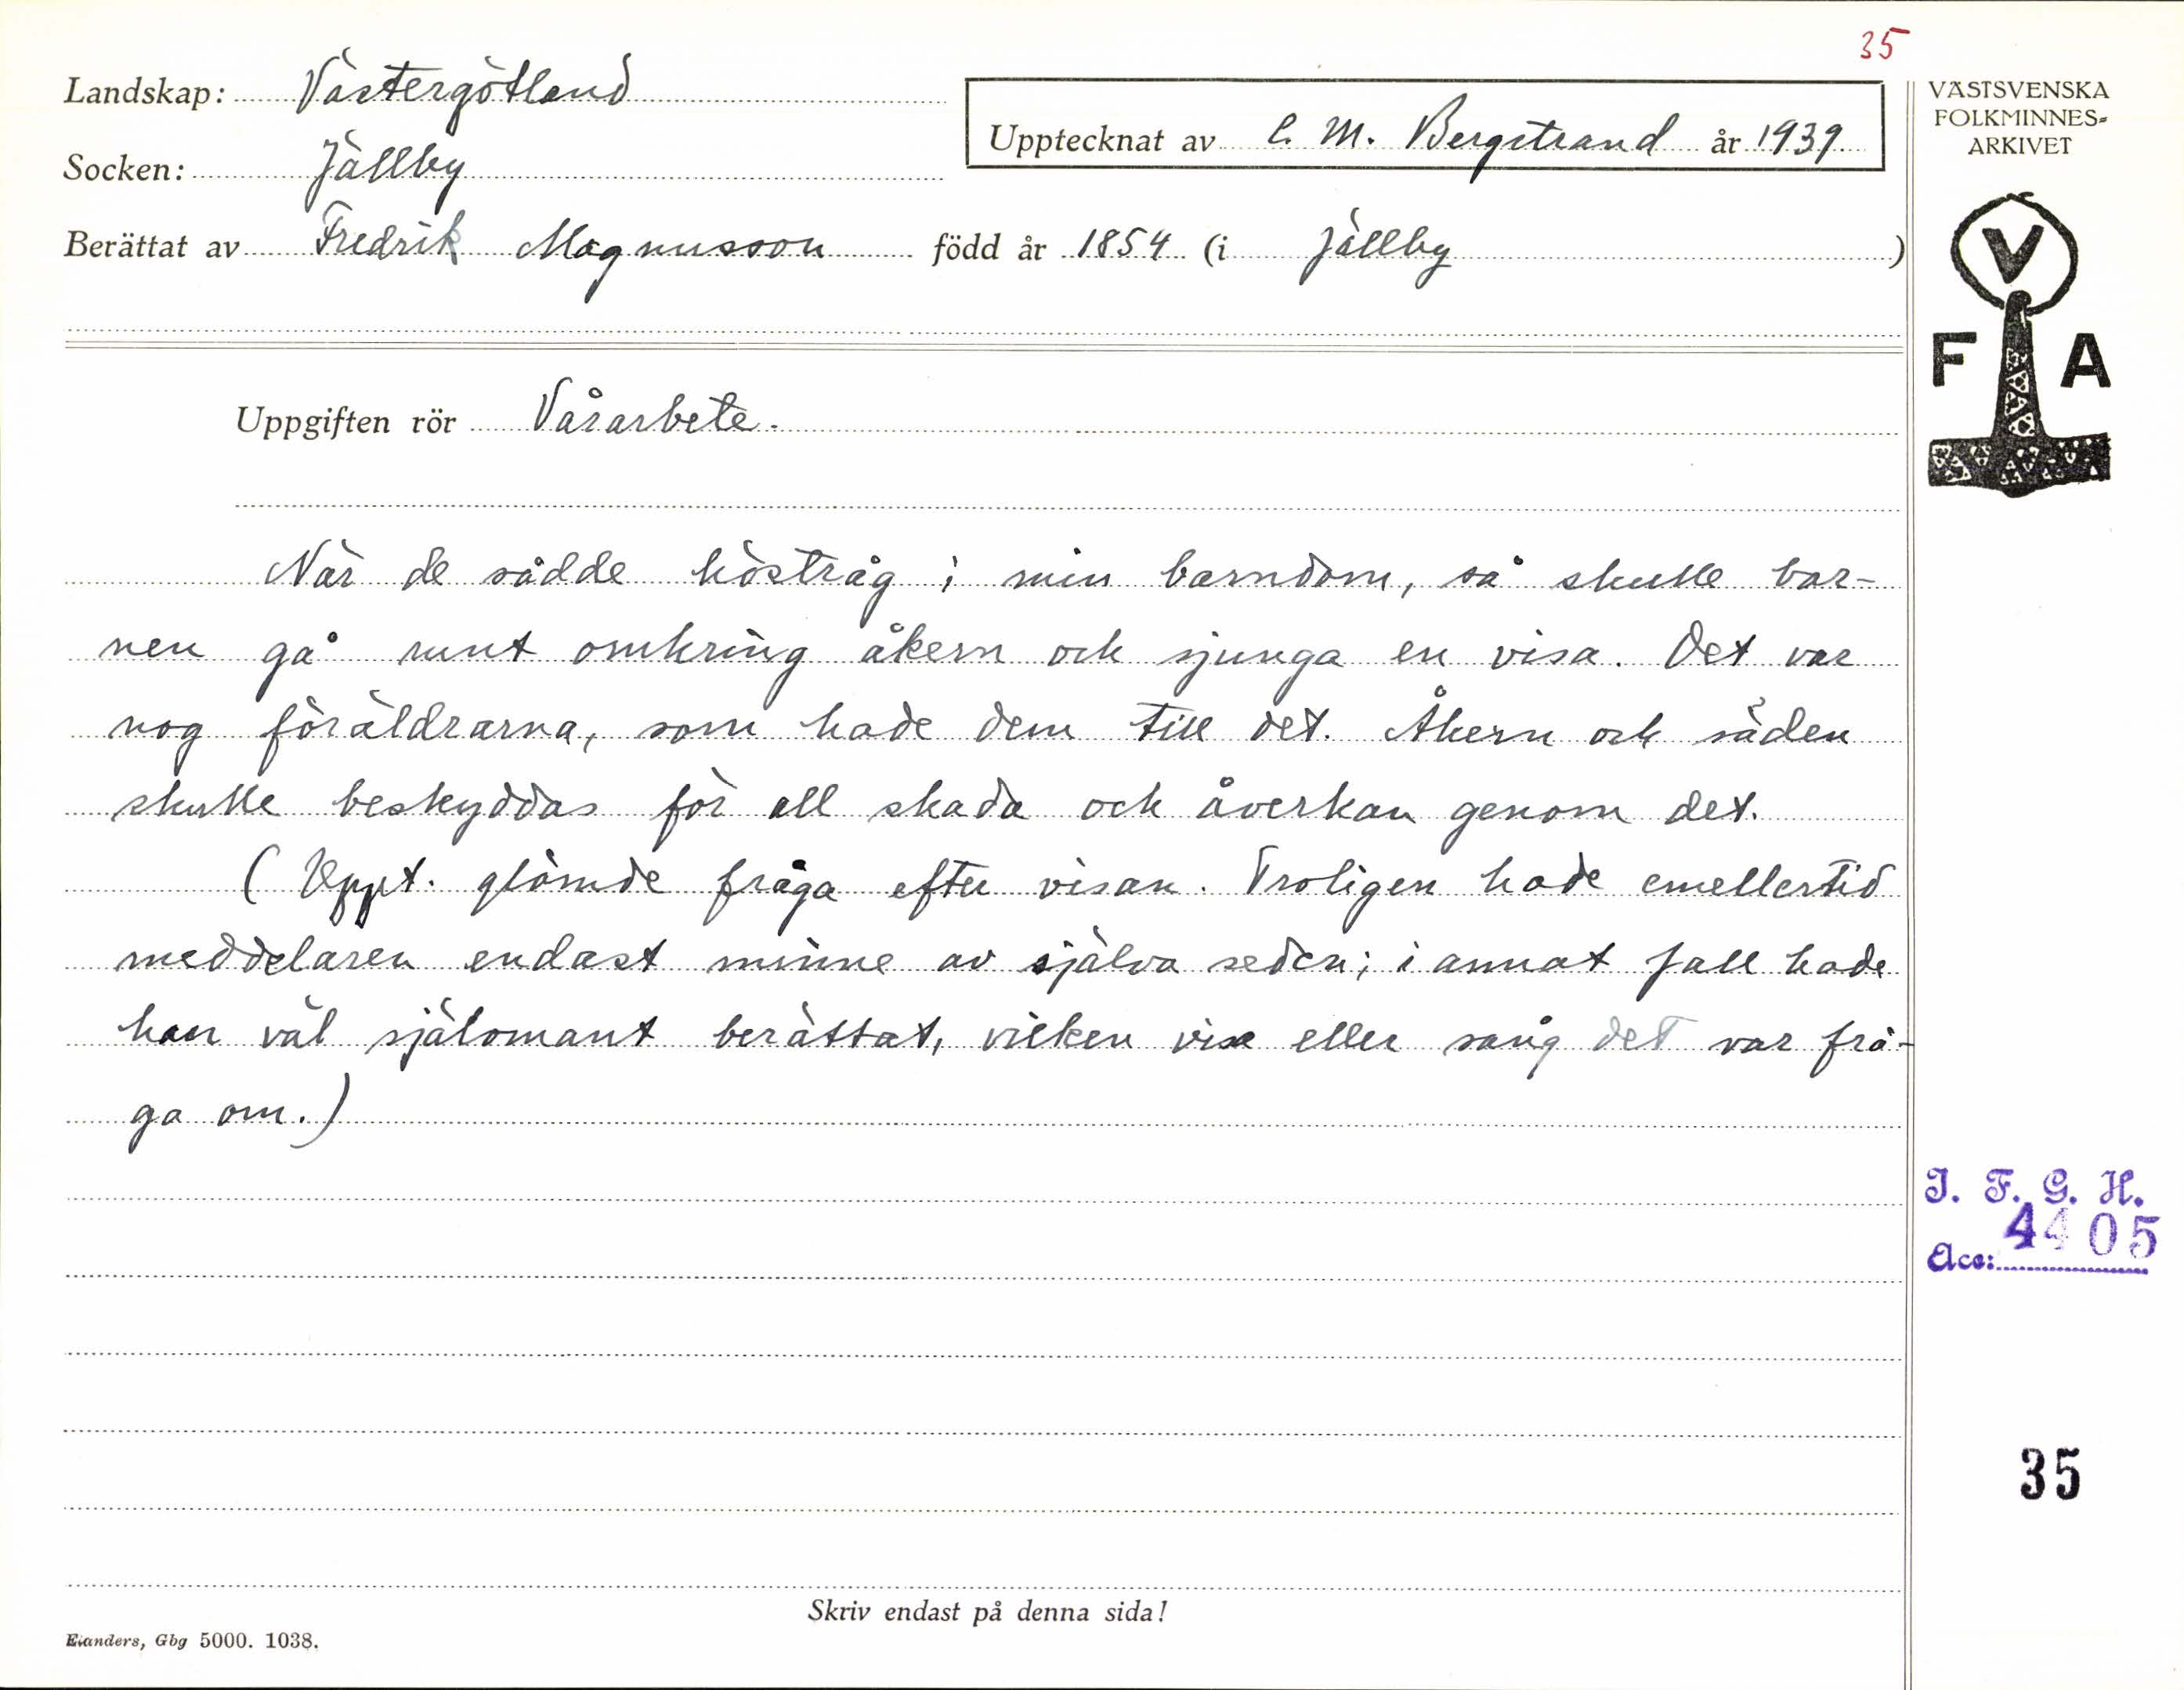 35
Landskap: Västergötland
Upptecknat av C. M. Bergstrand år 1939
VÄSTSVENSKA
FOLKMINNES-
ARKIVET
Socken: Jällby
Berättat av Fredrik Magnusson född år 1854 (i Jällby)
V
F A
Uppgiften rör Vårarbete.
När de sådde höstråg i min barndom, så skulle bar-
nen gå runt omkring åkern och sjunga en visa. Det var
nog föräldrarna, som hade dem till det. Åkern och säden
skulle beskyddas för all skada och åverkan genom det.
(Uppt. glömde fråga efter visan. Troligen hade emellertid
meddelaren endast minne av själva seden; i annat fall hade
han väl självmant berättat, vilken visa eller sång det var frå-
ga om.)
I. F. G. H.
Acc: 4405
35
Skriv endast på denna sida!
Elanders, Gbg 5000. 1038.